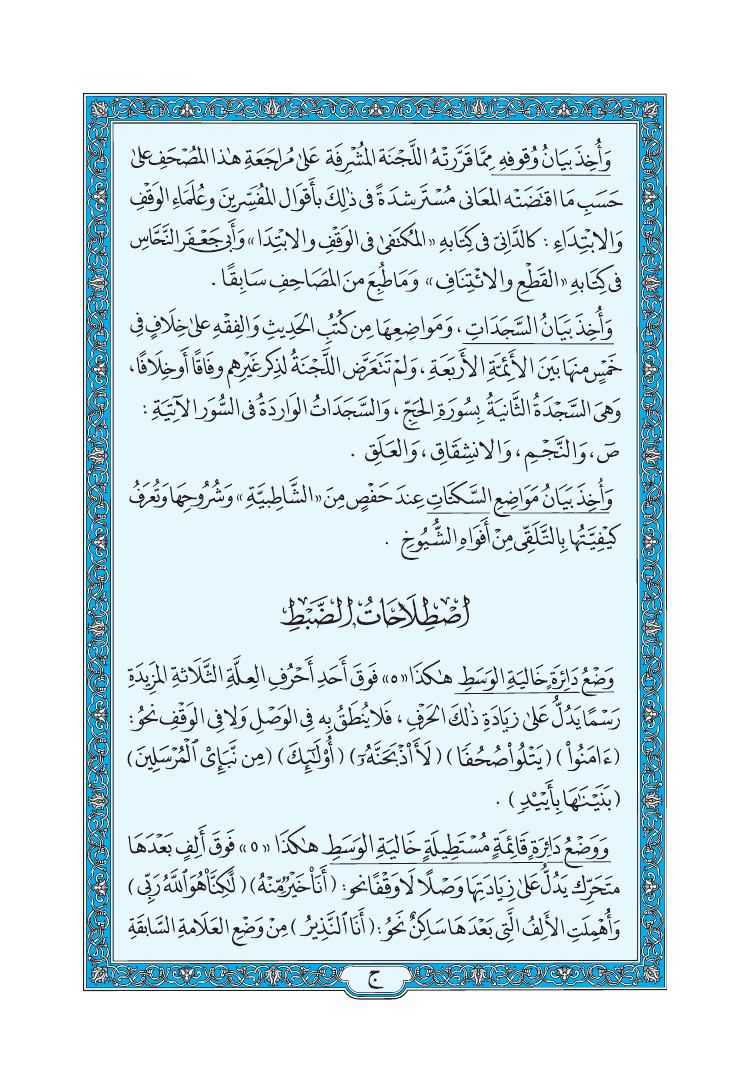 وَأُخِذَ بَيَانُ وُقُوفِهِ مِمَّا قَرَّرَتْهُ اللَّجْنَة المُشْرِفَة عَلى مُرَاجَعَةِ هٰذا المُصْحَفِ عَلىٰ
حَسَبِ مَا اقتَضَتْه المَعَانى مُسْتَرشدَةً فى ذٰلِكَ بأَقوَالِ المُفَسِّرِينَ وعُلَمَاءِ الوَقْفِ
وَالابْتِدَاءِ : كالدَّانىّ فى كِتَابهِ «المُكتَفىٰ فى الوَقْفِ والابْتِدَا» وَأَبى جَعْفَرٍ النَّحَّاسِ
فى كِتَابهِ «القَطْعِ والائْتِنَافِ» وَمَا طُبِعَ منَ المَصَاحِفِ سَابقًا .
وَأُخِذَ بَيَانُ السَّجَدَاتِ ، وَمَواضِعِهَا مِن كُتُبِ الحَدِيثِ وَالفِقْهِ عَلىٰ خِلَافٍ فى
خَمْسٍ مِنهَا بَيَن الأَئِمَّةِ الأَرْبَعَةِ ، وَلَمْ تَتَعَرَّض اللَّجْنَةُ لِذِكرِ غَيْرِهِم وِفَاقًا أَو خِلَافًا،
وَهىَ السَّجْدَةُ الثَّانيَةُ بِسُورَةِ الحَجّ ، وَالسَّجَدَاتُ الوَارِدَةُ فى السُّوَر الآتِيَةِ :
صٓ ، وَالنَّجْمِ ، وَالانشِقَاقِ ، وَالعَلَقِ .
وَأُخِذَ بَيَانُ مَوَاضِعِ السَّكتَاتِ عِندَ حَفْصٍ مِنَ «الشَّاطِبيَّةِ» وَشُرُوحِهَا وَتُعرَفُ
كَيْفِيَّتُهَا بِالتَّلَقِّى مِنْ أَفوَاهِ الشُّيُوخِ .
اصْطِلَاحَاتُ الضَّبْطِ
وَضْعُ دَائِرَةٍ خَاليَةِ الوَسَطِ هٰكذَا «ه» فَوقَ أَحَدِ أَحْرُفِ العِلَّةِ الثَّلَاثَةِ المَزيدَةِ
رَسْمًا يَدُلُّ عَلىٰ زيَادَةِ ذٰلكَ الحَرْفِ ، فَلَا يُنطَقُ بِهِ فى الوَصْلِ وَلَا فى الوَقْفِ نَحْوُ:
(ءَامَنُواْ) (يَتْلُواْ صُحُفًا) (لَأَاْذْبَحَنَّهُۥٓ) (أُوْلَٰٓئِكَ) (مِن نَّبَإِىْ ٱلْمُرْسَلِينَ)
(بَنَيْنَٰهَا بِأَيْيْدٍ) .
وَوَضْعُ دَائِرَةٍ قَائِمَةٍ مُسْتَطِيلَةٍ خَاليَةِ الوَسَطِ هٰكذَا «٥» فَوقَ أَلِفٍ بَعْدَهَا
مُتَحَرّك يَدُلُّ عَلىٰ زيَادَتِهَا وَصْلًا لَا وَقْفًا نحو: (أَنَا۠ خَيْرٌ مِّنْهُ) (لَّٰكِنَّا۠ هُوَ ٱللَّهُ رَبِّى)
وَأُهْمِلَتِ الأَلِفُ الَّتِى بَعْدَهَا سَاكِنٌ نَحْوُ: (أَنَا ٱلنَّذِيرُ) مِنْ وَضْعِ العَلَامَةِ السَّابقَةِ
ج